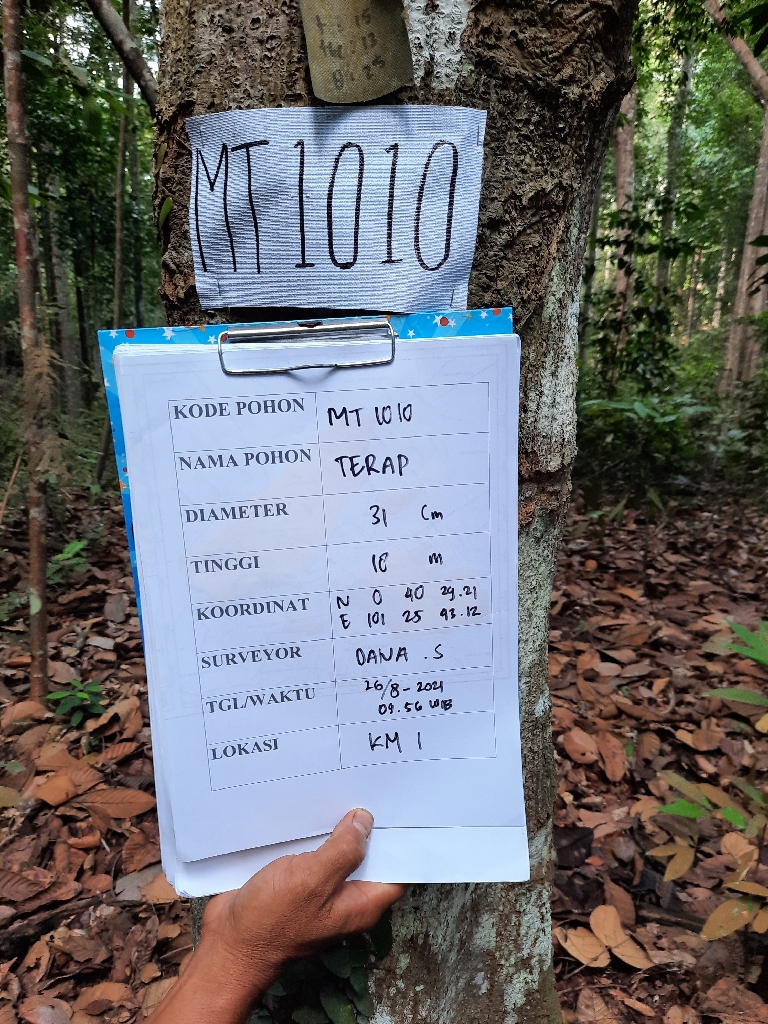 14:12
MT1010
KODE POHON MT 1010
NAMA POHON TERAP
DIAMETER 31 Cm
TINGGI 18 m
KOORDINAT N 0 40 29.21
E 101 25 43.12
SURVEYOR DANA .S
TGL/WAKTU 26/8-2021
09.56 WIB
LOKASI KM 1